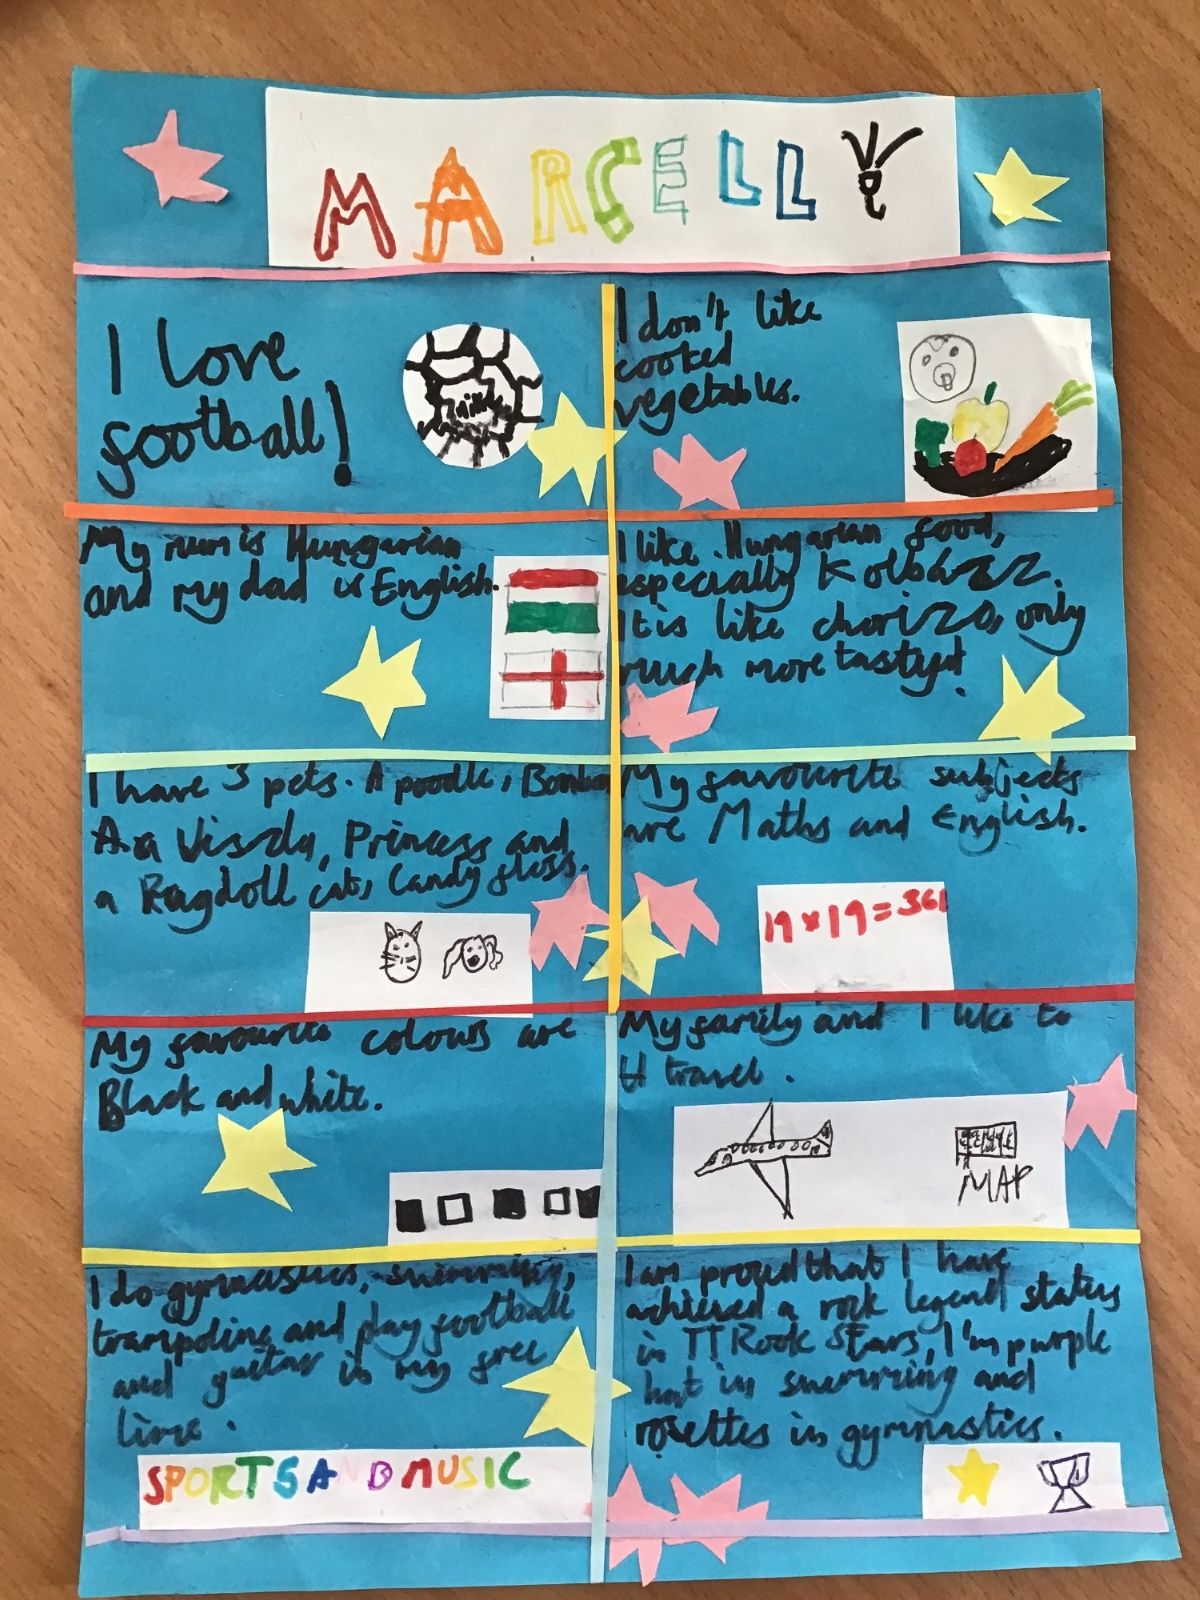 MARCELL
I love
football!
I don't like
cooked
vegetables.
My mum is Hungarian
and my dad is English.
I like Hungarian food,
especially Kolbázz.
It is like chorizo, only
much more tasty!
I have 3 pets. A poodle,
A Viszla, Princess and
a Ragdoll cat, Candy floss.
My favourite subjects
are Maths and English.
19×19=361
My favourite colours are
Black and white.
My family and I like to
travel.
MAP
I do gymnastics, swimming,
trampoline and play football
and guitar in my free
time.
SPORTS AND MUSIC
I am proud that I have
achieved a rock legend status
in TTRock Stars, I'm purple
hat in swimming and
rosettes in gymnastics.